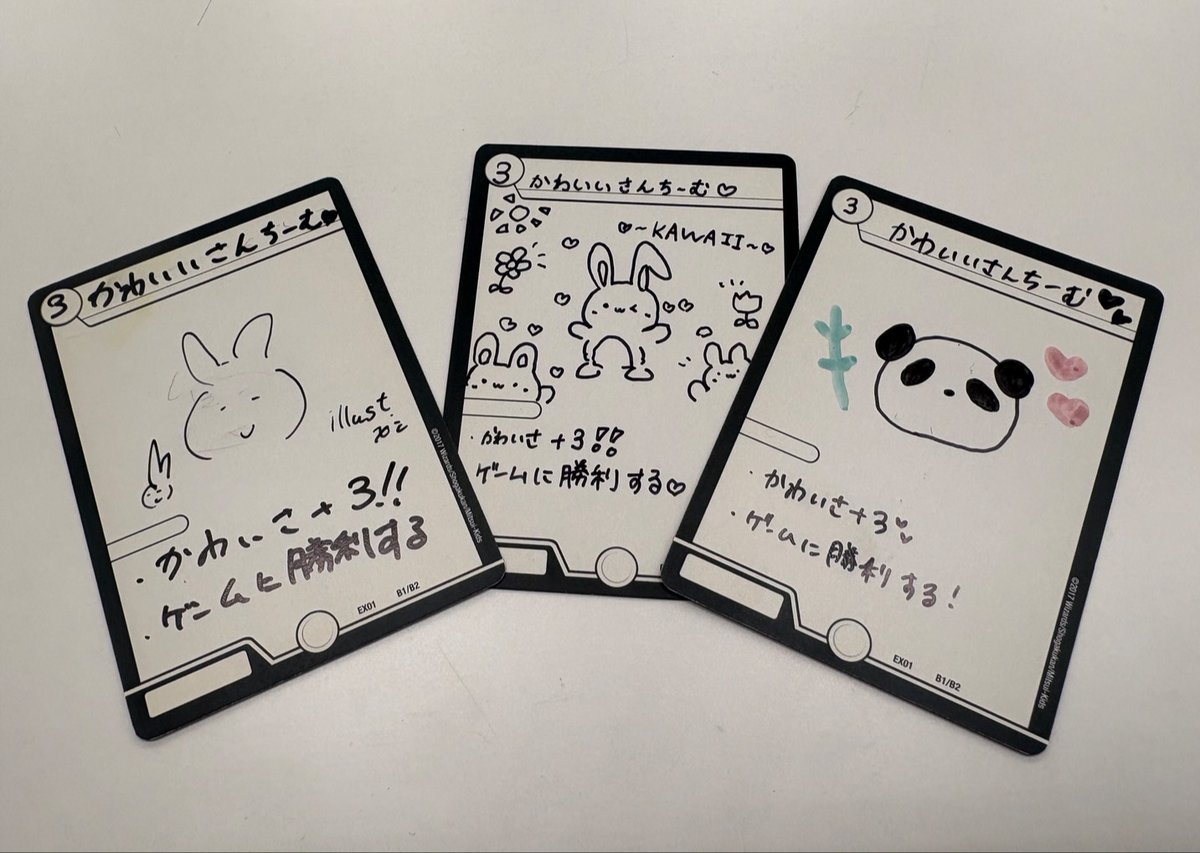 3
かわいいさんちーむ♥
illust
・かわいさ+3!!
・ゲームに勝利する
EX01 B1/B2
©2017 Wizards/Shogakukan/Mitsui-Kids
3
かわいいさんちーむ♡
♡~KAWAII~♡
・かわいさ+3!!
ゲームに勝利する♡
3
かわいいさんちーむ♥♥
・かわいさ+3♥♥
・ゲームに勝利する!
EX01 B1/B2
©2017 Wizards/Shogakukan/Mitsui-Kids